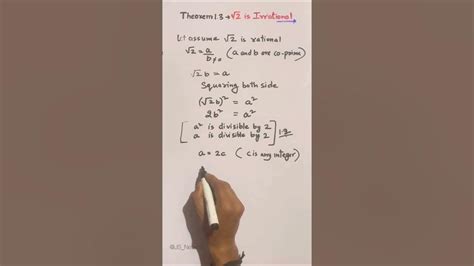 Theorem 1.3 → √2 is Irrational
Let assume √2 is rational
√2 = a/b≠0 (a and b are co-prime)
√2 b = a
Squaring both side
(√2b)² = a²
2b² = a²
[a² is divisible by 2
a is divisible by 2] 1.2
a = 2c (c is any integer)